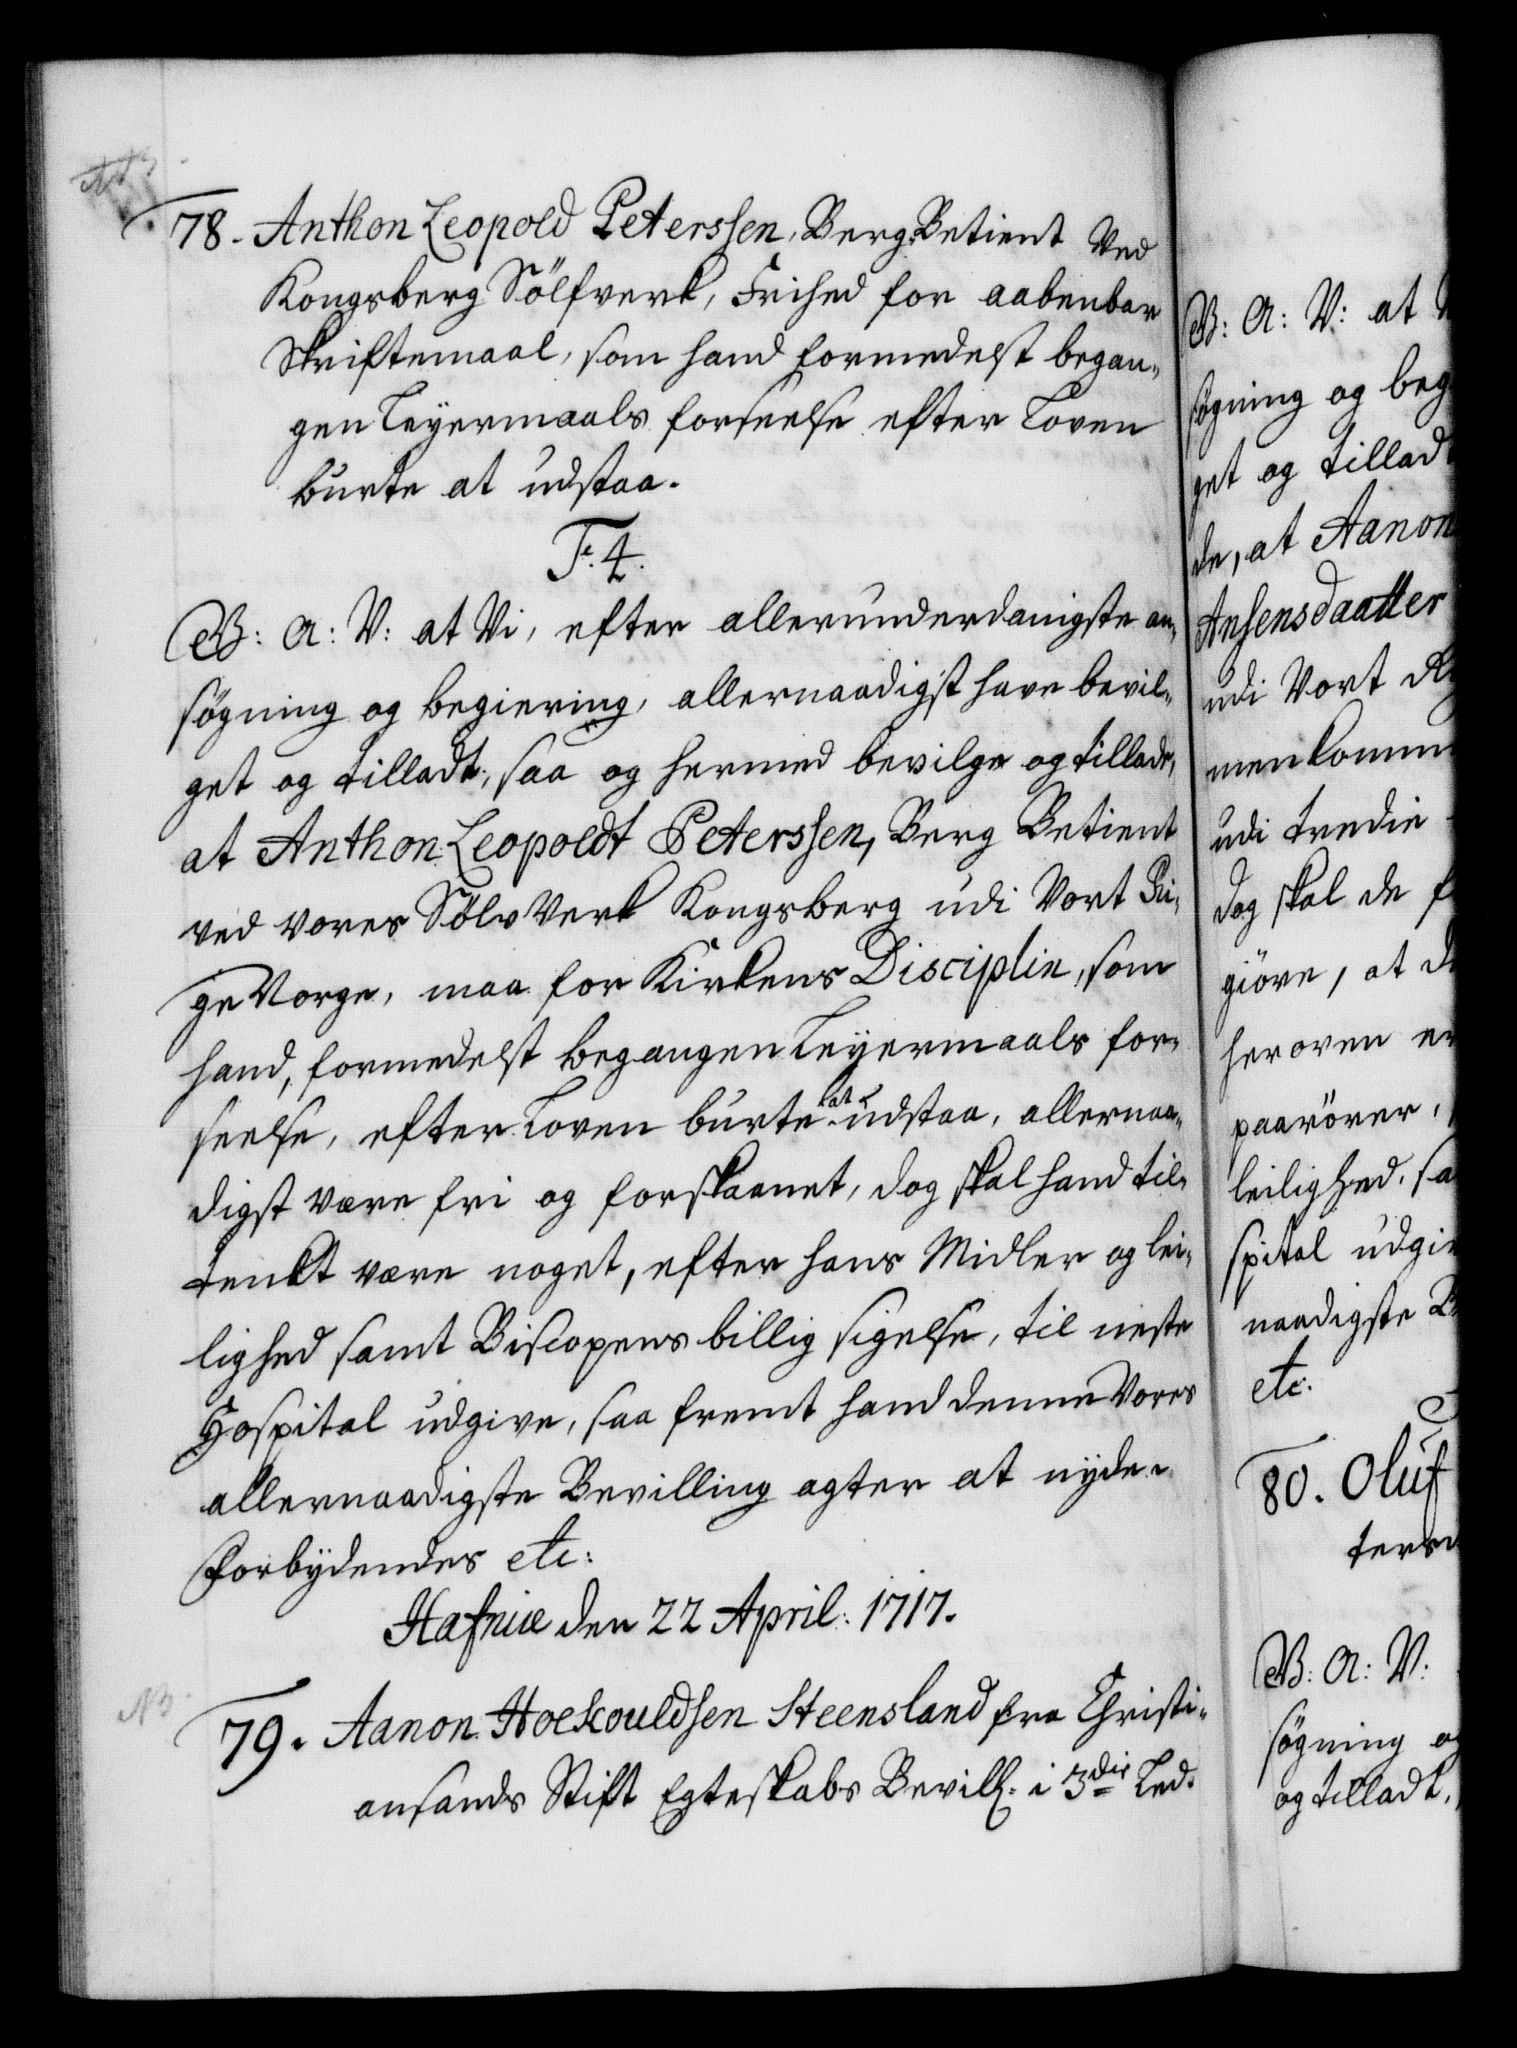 NB
78. Anthon Leopold Peterssen, Berg Betient Ved
Kongsberg Sölfverk, Frihed for aabenbar
Skriftemaal, som hand formedelst began„
gen Leyermaals forseelse efter Loven
burte at udstaa.
F. 4.
G: A: V: at Vi, efter allerunderdanigste an„
søgning og begiering, allernaadigst have bevil„
get og tilladt, saa og hermed bevilge og tillade,
at Anthon Leopoldt Peterssen, Berg Betient
ved vores Sölv Verk Kongsberg udi Vort Ri„
ge Norge, maa for Kirkens Disciplin, som
hand, formedelst begangen Leyermaals for„
seelse, efter Loven burte at udstaa, allernaa„
digst være fri og forskaanet, dog skal hand til„
tenkt være noget, efter hans Midler og lei„
lighed samt Biscopens billig sigelse, til neste
Hospital udgive, saa fremt hand denne Vores
allernaadigste Bevilling agter at nyde.
Forbydendes etc:
Hafniæ den 22 April: 1717.
NB
79. Aanon Hoekouldsen Steensland fra Christi„
ansands Stift Egteskabs Bevill: i 3die Led.
G: A: V: at
søgning og beg
get og tillad
de, at Aanon
Ansensdaatter
udi Vort
menkomm
udi tredie
dog skal de f
giøre, at d
herover er
paarörer,
leilighed, sa
spital udgiv
naadigste
etc.
80. Oluf
ters
G: A: V:
søgning og
og tilladt,